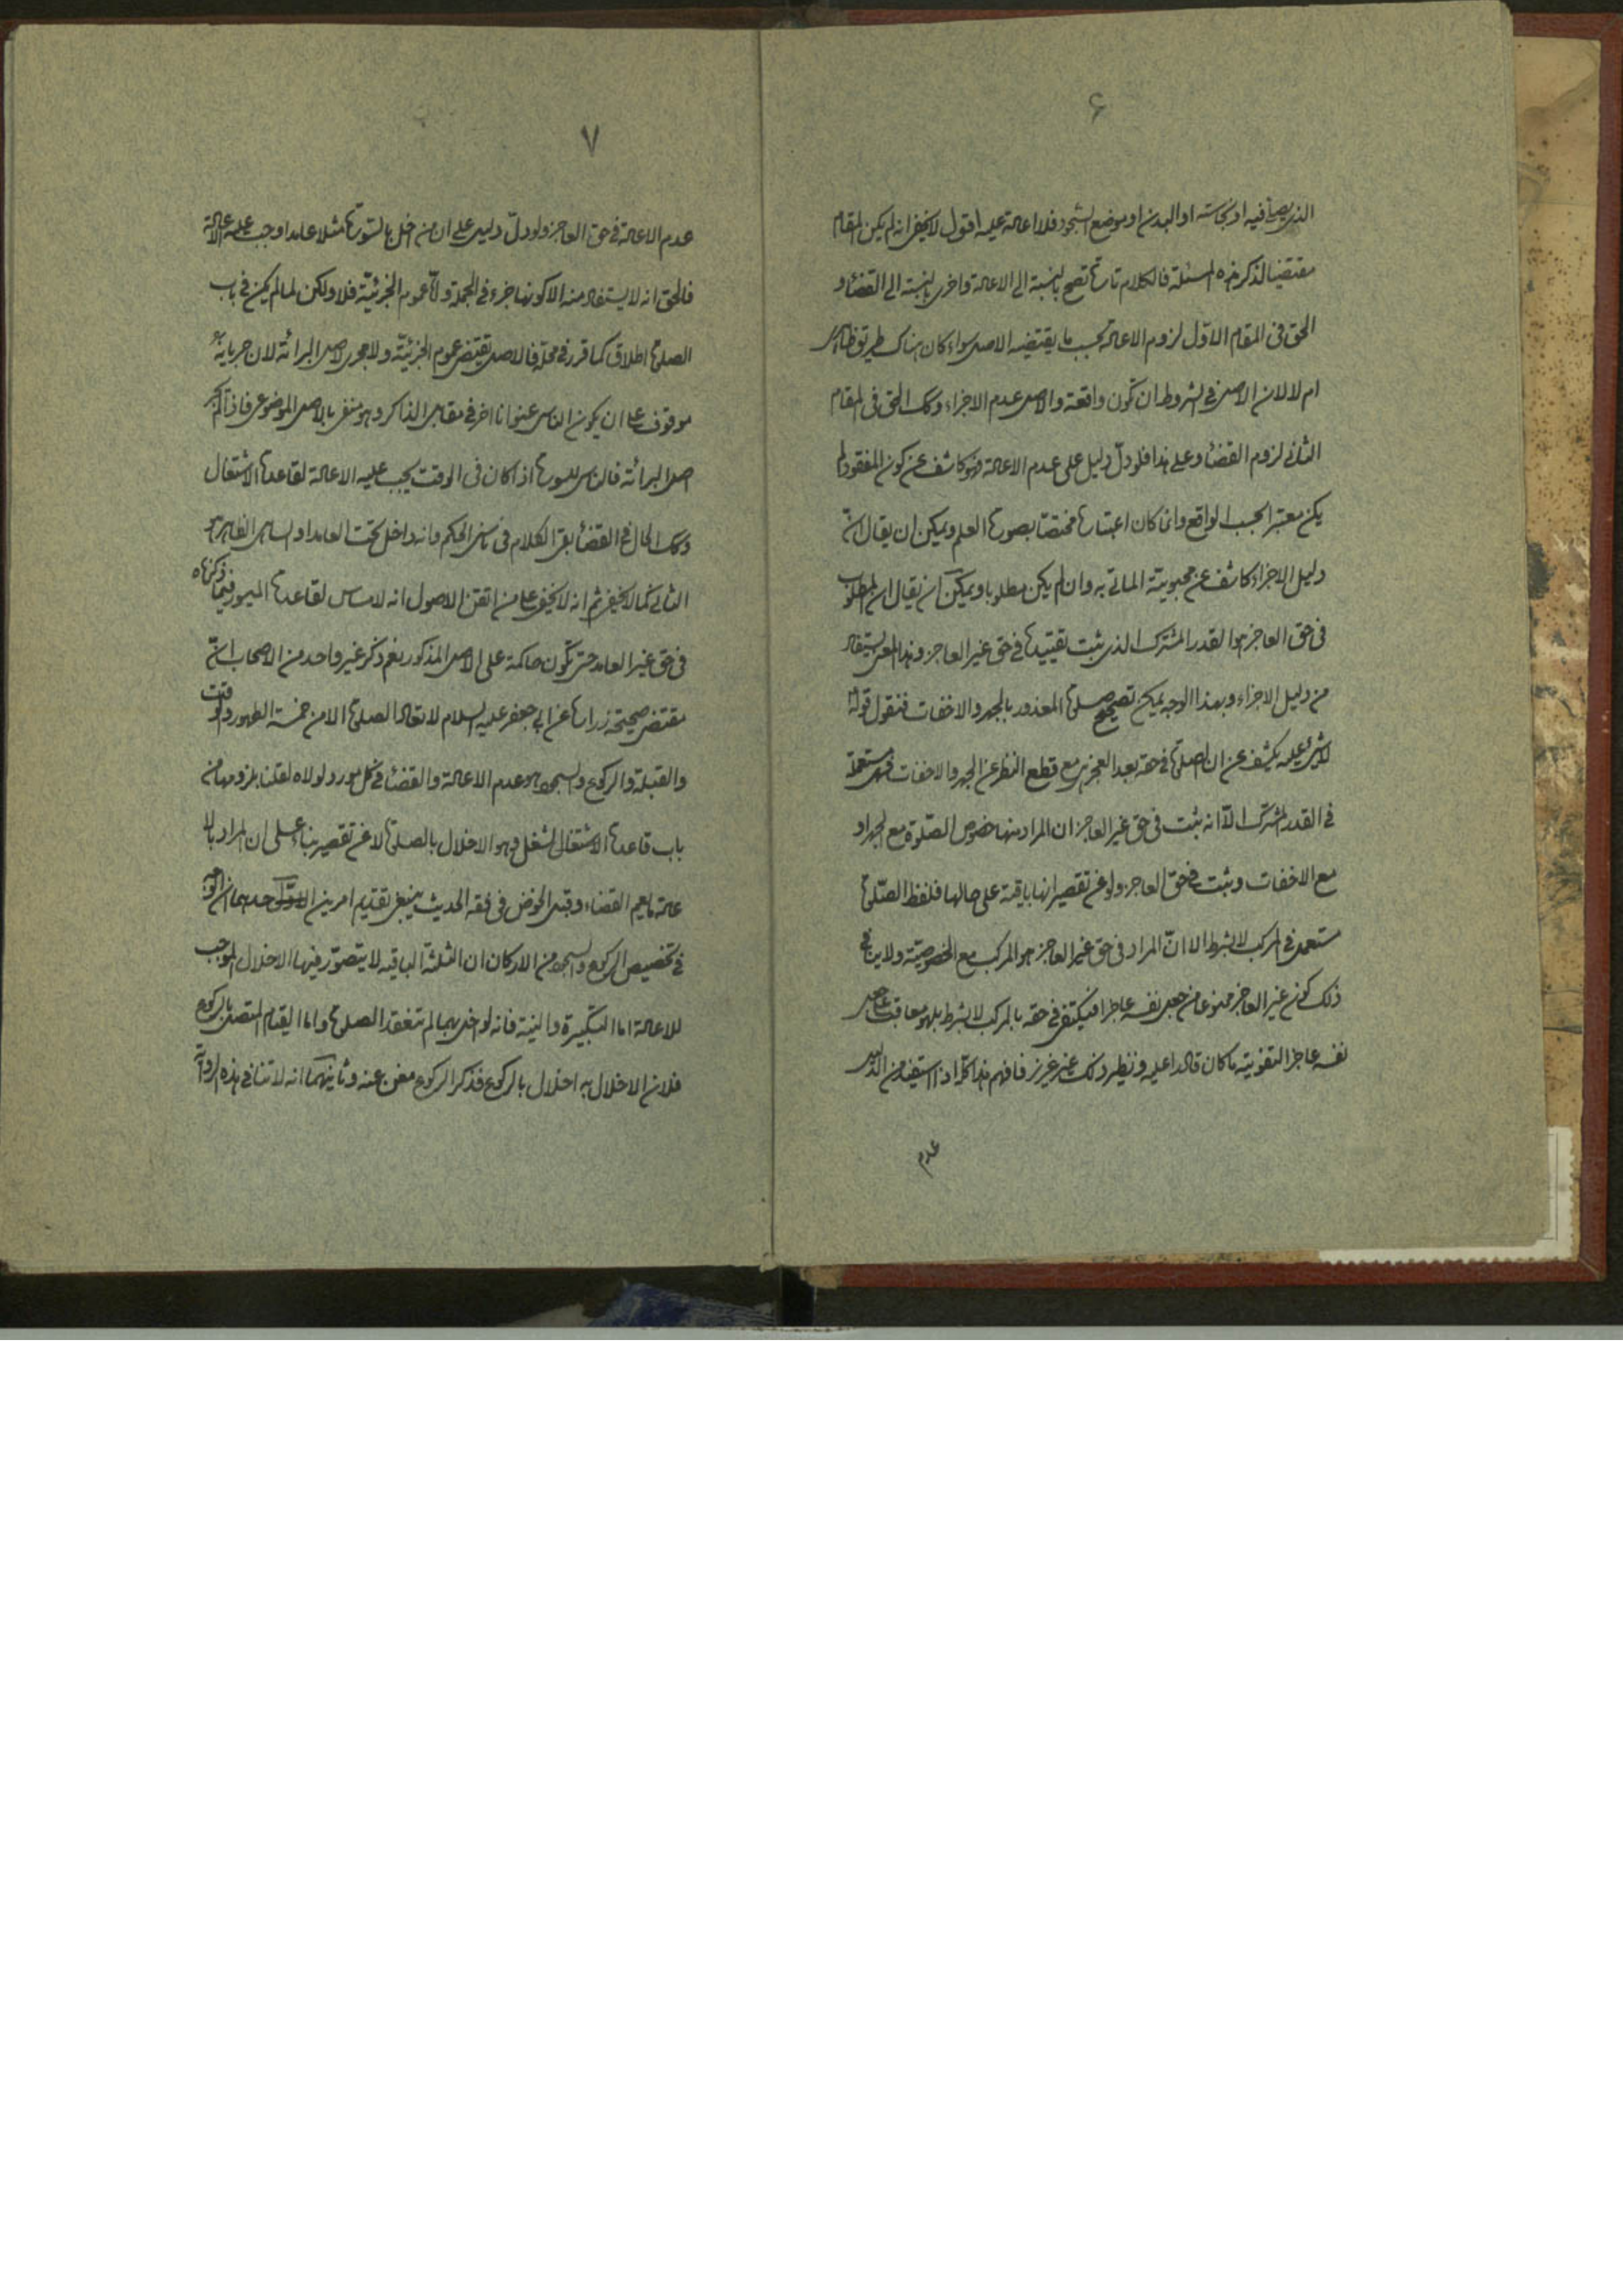 ۶
الذى يصلى فيه او نجاسته او البدن او موضع السجود فلا اعادة عليه اقول لا يخفى انه لم يكن المقام
مقتضيا لذكر هذه المسئلة فالكلام تارة تصح بالنسبة الى الاعادة واخرى بالنسبة الى القضاء و
الحق فى المقام الاوّل لزوم الاعادة بحسب ما يقتضيه الاصل سواء كان هناك طريق ظاهرى
ام لا لان الاصل فى الشروط ان تكون واقعية والاصل عدم الاجزاء وكك الحق فى المقام
الثانى لزوم القضاء وعلى هذا فلو دلّ دليل على عدم الاعادة فهو كاشف عن كون المفقود لم
يكن معتبرا بحسب الواقع وانما كان اعتباره مختصّا بصورة العلم ويمكن ان يقال انّ
دليل الاجزاء كاشف عن محبوبيّة الماتى به وان لم يكن مطلوبا ويمكن ان يقال ان المطلوب
فى حق العاجز هو القدر المشترك الذى ثبت تقييده فى حق غير العاجز وهذا المعنى يستفاد
من دليل الاجزاء وبهذا الوجه يمكن تصحيح صلوة المعذور بالجهر والاخفات فنقول قوله
لا شىء عليه يكشف عن ان الصلوة فى حقه بعد العجز هى مع قطع النظر عن الجهر والاخفات فهى مستعملة
فى القدر المشترك الّا انه ثبت فى حق غير العاجز ان المراد منها خصوص الصّلوة مع الجهر او
مع الاخفات وثبت فى حق العاجز ولو عن تقصير انها باقية على حالها فلفظ الصّلوة
مستعمل فى المركب لا بشرط الا انّ المراد فى حق غير العاجز هو المركب مع الخصوصيّة ولا ينافى
ذلك كون غير العاجز ممنوعا من جعل نفسه عاجزا فيكتفى فى حقه بالمركب لا بشرط بل هو معاقب على جعل
نفسه عاجزا لتفويته ما كان قادرا عليه ونظير ذلك غير عزيز فافهم هذا كلّه اذا استفيد من الدليل
عدم
۷
عدم الاعادة فى حق العاجز ولو دلّ دليل على ان من اخل بالسّورة مثلا عامدا وجب عليه الاعادة
فالحق انه لا يستفاد منه الا كونها جزء فى الجملة وامّا عموم الجزئيّة فلا ولكن لما لم يكن فى باب
الصلوة اطلاق كما قرر فى محلّه فالاصل يقتضى عموم الجزئيّة ولا يجرى اصل البرائة لان جريانه
موقوف على ان يكون الناسى عنوانا اخر فى مقابل الذاكر وهو منفى بالاصل الموضوعى فاذا لم يجر
اصل البرائة فالناسى للسورة اذا كان فى الوقت يجب عليه الاعادة لقاعدة الاشتغال
وكك الحال فى القضاء بقى الكلام فى ناسى الحكم وانه داخل تحت العامد او الساهى الظاهر هو
الثانى كما لا يخفى ثم انه لا يخفى على من اتقن الاصول انه لا مساس لقاعدة الميسور فيما ذكرناه
فى حق غير العامد حتى تكون حاكمة على الاصل المذكور نعم ذكر غير واحد من الاصحاب انّ
مقتضى صحيحة زرارة عن ابى جعفر عليه السلام لا تعاد الصلوة الا من خمسة الطهور والوقت
والقبلة والركوع والسجود هو عدم الاعادة والقضاء فى كل مورد لولاه لقلنا بلزومها من
باب قاعدة الاشتغال لشغل وهو الاخلال بالصلوة لا عن تقصير بناء على ان المراد بالا
عادة ما يعم القضاء وقبل الخوض فى فقه الحديث ينبغى تقديم امرين احدهما ان الوجه
فى تخصيص الركوع والسجود من الاركان ان الثلثة الباقيه لا يتصوّر فيها الاخلال الموجب
للاعادة اما التكبيرة والنية فانه لو اخل بهما لم تنعقد الصلوة واما القيام المتصل بالركوع
فلان الاخلال به اخلال بالركوع فذكر الركوع مغن عنه وثانيهما انه لا تنافى هذه الرواية